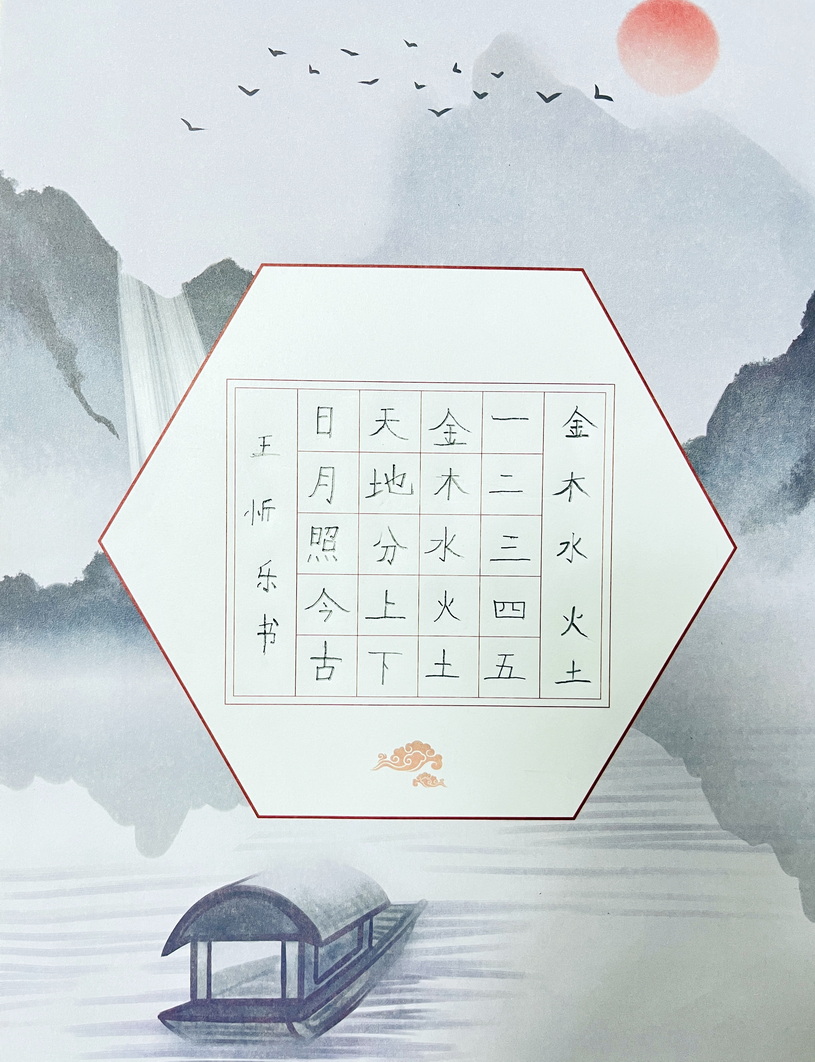 金木水火土
一二三四五
金木水火土
天地分上下
日月照今古
王忻乐书